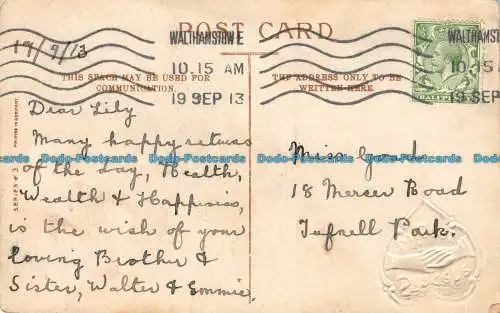 POST CARD
WALTHAMSTOW E
10.15 AM
19 SEP 13
WALTHAMSTOW E
10.15 A
19 SEP 13
HALFPENNY
19/9/13
THIS SPACE MAY BE USED FOR
COMMUNICATION.
THE ADDRESS ONLY TO BE
WRITTEN HERE
Dear Lily
Many happy returns
of the day, Health,
Wealth & Happiness,
is the wish of your
loving Brother &
Sister, Walter & Emmie.
Miss Good
18 Mercer Road
Tufnell Park.
Dodo-Postcards Dodo-Postcards Dodo-Postcards Dodo-Postcards